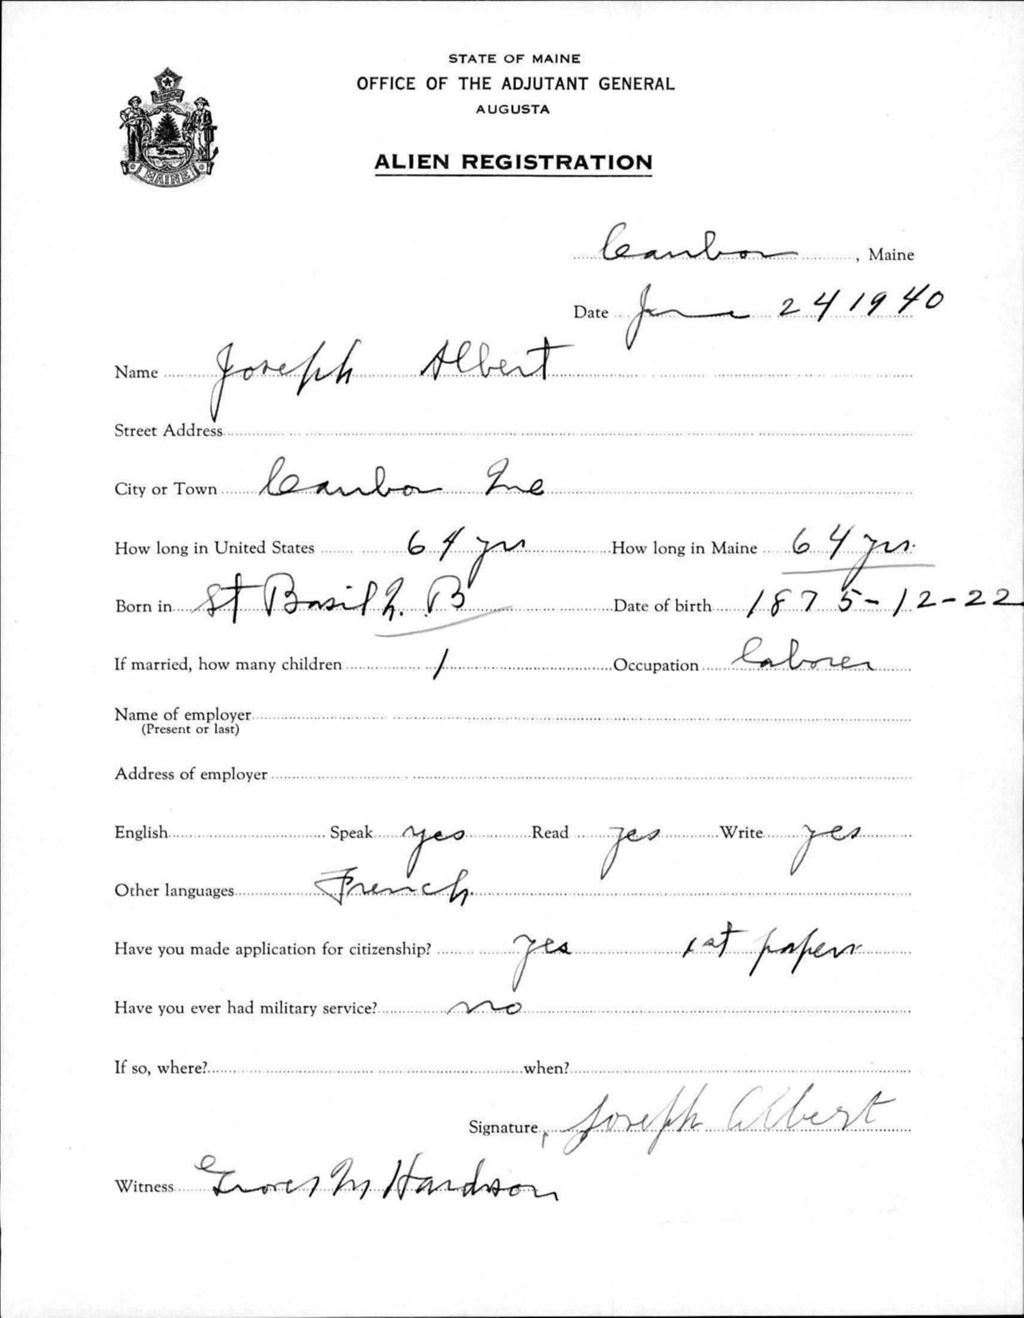 STATE OF MAINE
OFFICE OF THE ADJUTANT GENERAL
AUGUSTA
MAINE
ALIEN REGISTRATION
Caribou, Maine
Date June 24 1940
Name Joseph Albert
Street Address
City or Town Caribou Me
How long in United States 64 yrs How long in Maine 64 yrs.
Born in St Basil N. B Date of birth 1875-12-22
If married, how many children 1 Occupation laborer
Name of employer
(Present or last)
Address of employer
English Speak yes Read yes Write yes
Other languages French
Have you made application for citizenship? yes 1st papers
Have you ever had military service? no
If so, where? when?
Signature Joseph Albert
Witness M Hardson